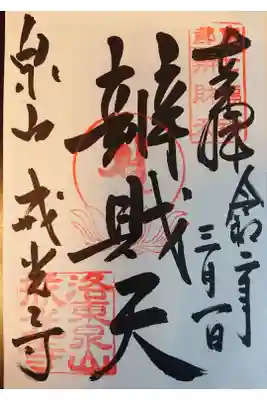 奉拝
令和二年
三月一日
辨財天
泉山 戒光寺
洛東泉山
戒光寺